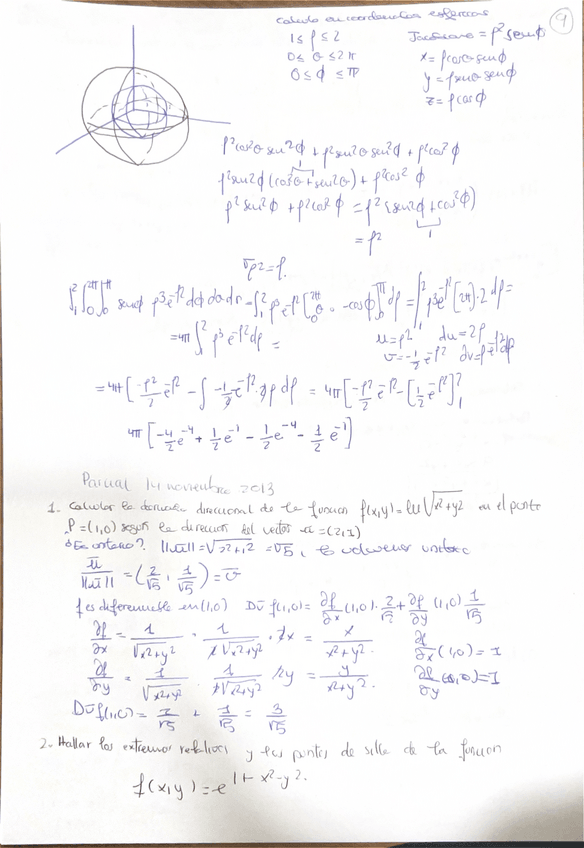 9
Calculo en coordenadas esfericas
1 ≤ ρ ≤ 2
0 ≤ θ ≤ 2π
0 ≤ ϕ ≤ π
Jacobiano = ρ² senϕ
x = ρcosθ senϕ
y = ρsenθ senϕ
z = ρcosϕ
ρ²cos²θ sen²ϕ + ρ²sen²θ sen²ϕ + ρ²cos²ϕ
ρ²sen²ϕ (cos²θ + sen²θ) + ρ²cos²ϕ
ρ² sen²ϕ + ρ²cos²ϕ = ρ² (sen²ϕ + cos²ϕ)
= ρ²
√ρ² = ρ.
= 4π ∫₁² ρ³ e^-ρ² dρ =
u = ρ² du = 2ρ
v = -1/2 e^-ρ²
4π [-4/2 e^-4 + 1/2 e^-1 - 1/2 e^-4 - 1/2 e^-1]
Parcial 14 noviembre 2013
1. Calcular la derivada direccional de la funcion f(x,y) = ln √x²+y² en el punto
P = (1,0) segun la direccion del vector u = (2,1)
¿Es unitario? ||u|| = √2²+1² = √5, lo volvemos unitario
u/||u|| = (2/√5, 1/√5) = v
f es diferenciable en (1,0) Dv f(1,0) = ∂f/∂x (1,0) · 2/√5 + ∂f/∂y (1,0) 1/√5
∂f/∂x = 1/√x²+y² · 1/2√x²+y² · 2x = x/x²+y². ∂f/∂x (1,0) = 1
∂f/∂y = 1/√x²+y² · 1/2√x²+y² 2y = y/x²+y². ∂f/∂y (1,0) = 1
Dv f(1,0) = 2/√5 + 1/√5 = 3/√5
2. Hallar los extremos relativos y los puntos de silla de la funcion
f(x,y) = e^1+x²-y².